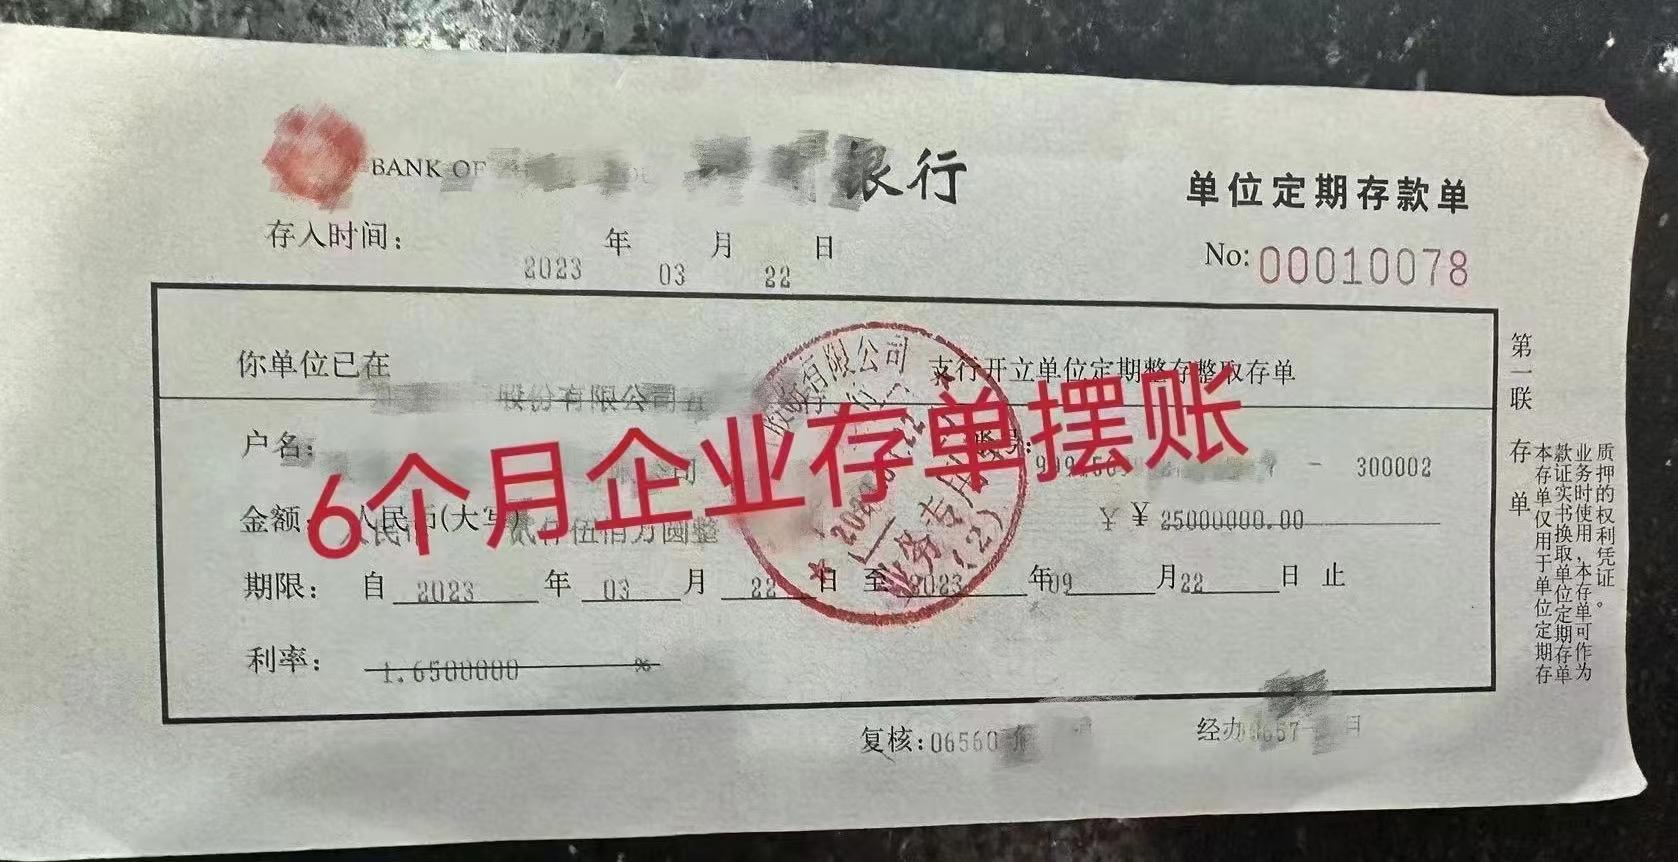 BANK OF 银行
单位定期存款单
存入时间: 2023 年 03 月 22 日
No: 00010078
你单位已在 股份有限公司 支行开立单位定期整存整取存单
户名: 公司 - 300002
金额: 人民币(大写) 贰仟伍佰万圆整 ¥ ¥ 25000000.00
期限: 自 2023 年 03 月 22 日 至 2023 年 09 月 22 日 止
利率: 1.6500000 %
复核:06560 经办
第一联 存单
本存单仅用于单位定期存
款证实书换取单位定期存单
业务时使用,本存单可作为
质押的权利凭证。
有限公司
业务专用
(2)
6个月企业存单摆账